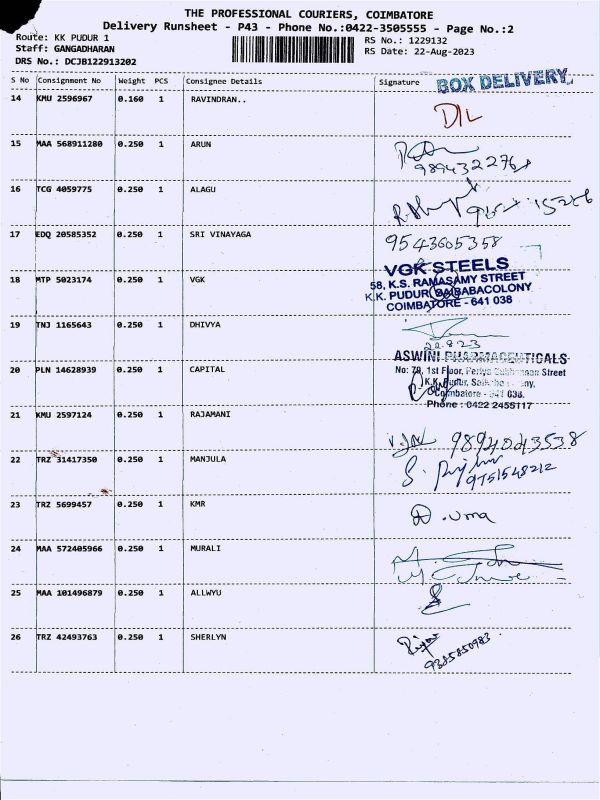 THE PROFESSIONAL COURIERS, COIMBATORE
Delivery Runsheet - P43 - Phone No.:0422-3505555 - Page No.:2
Route: KK PUDUR 1
RS No.: 1229132
Staff: GANGADHARAN
RS Date: 22-Aug-2023
DRS No.: DCJB122913202
S No Consignment No Weight PCS Consignee Details Signature
BOX DELIVERY
14 KMU 2596967 0.160 1 RAVINDRAN..
D/L
15 MAA 568911280 0.250 1 ARUN
16 TCG 4059775 0.250 1 ALAGU
17 EDQ 20585352 0.250 1 SRI VINAYAGA 9543605358
VGK STEELS
58, K.S. RAMASAMY STREET
18 MTP 5023174 0.250 1 VGK
K.K. PUDUR, SAIBABACOLONY
COIMBATORE - 641 038
19 TNJ 1165643 0.250 1 DHIVYA
22.8.23
ASWINI PHARMACEUTICALS
20 PLN 14628939 0.250 1 CAPITAL
No: 79, 1st Floor, Street
K.K. Pudur,
Coimbatore - 641 038.
Phone : 0422 2455117
21 KMU 2597124 0.250 1 RAJAMANI
9894043538
22 TRZ 31417350 0.250 1 MANJULA
9751548212
23 TRZ 5699457 0.250 1 KMR
. uma
24 MAA 572405966 0.250 1 MURALI
25 MAA 101496879 0.250 1 ALLWYU
26 TRZ 42493763 0.250 1 SHERLYN
9385850983